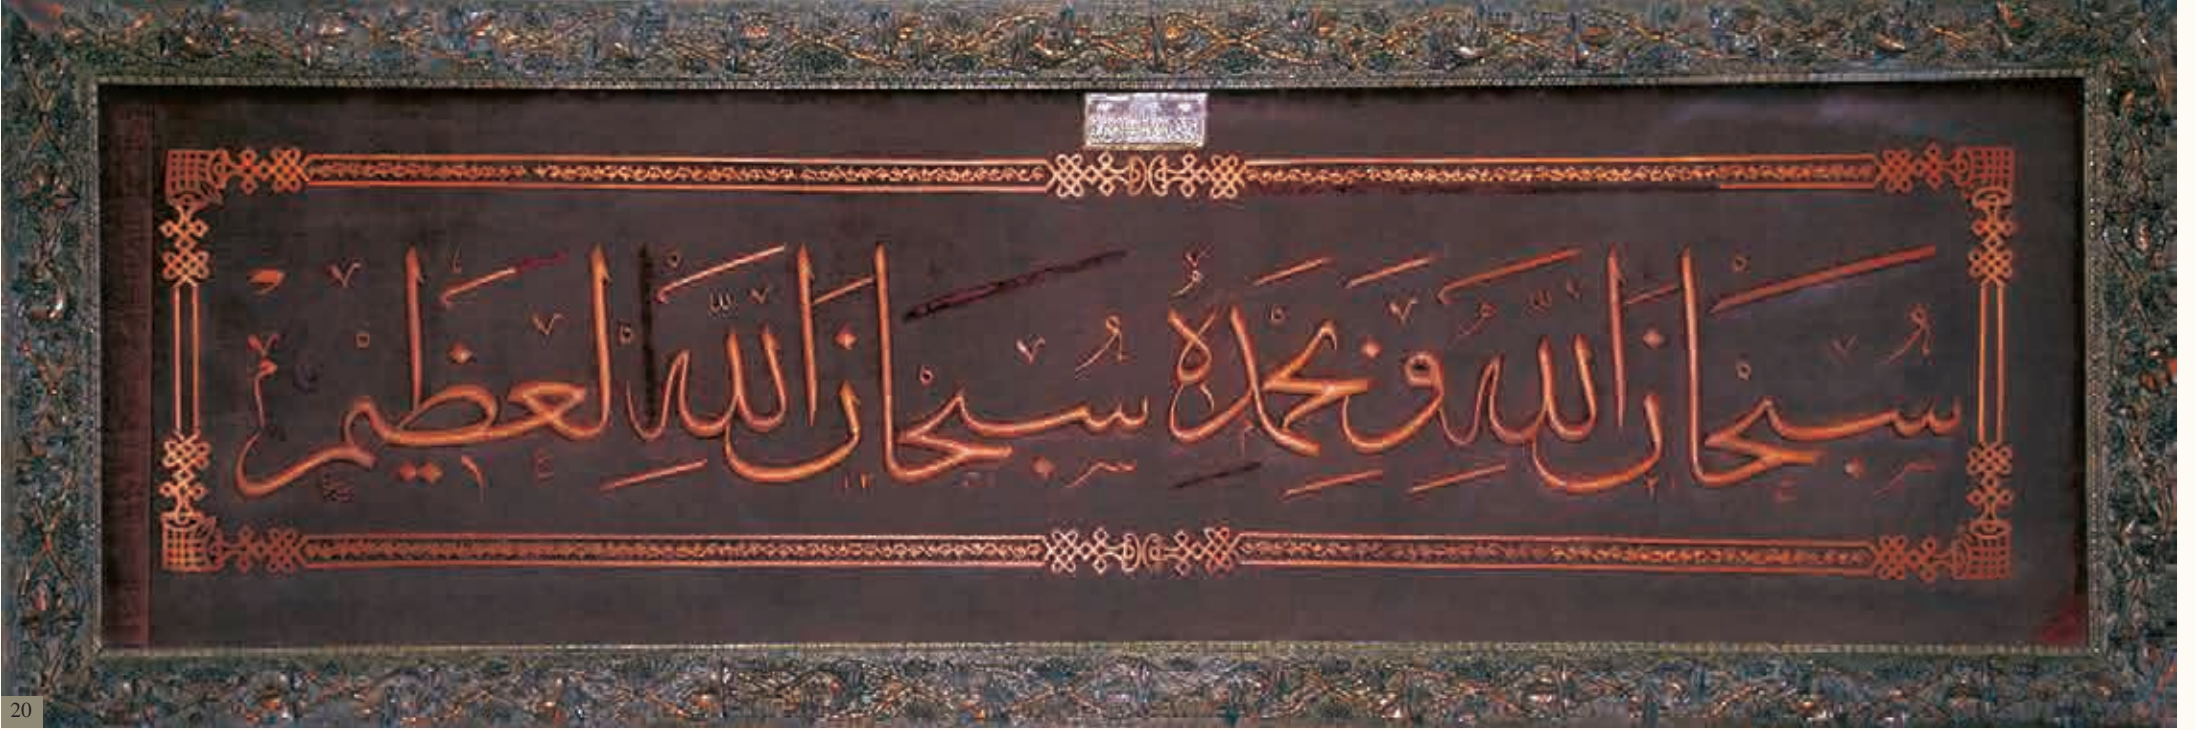 سبحان الله وبحمده سبحان الله العظيم
20